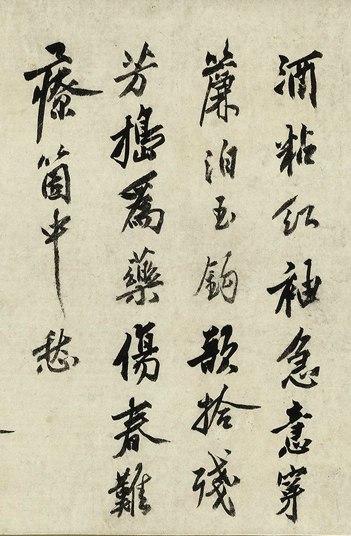 酒粘紅袖急意穿
簾泊玉鉤欲拾殘
芳搗為藥傷春難
療箇中愁